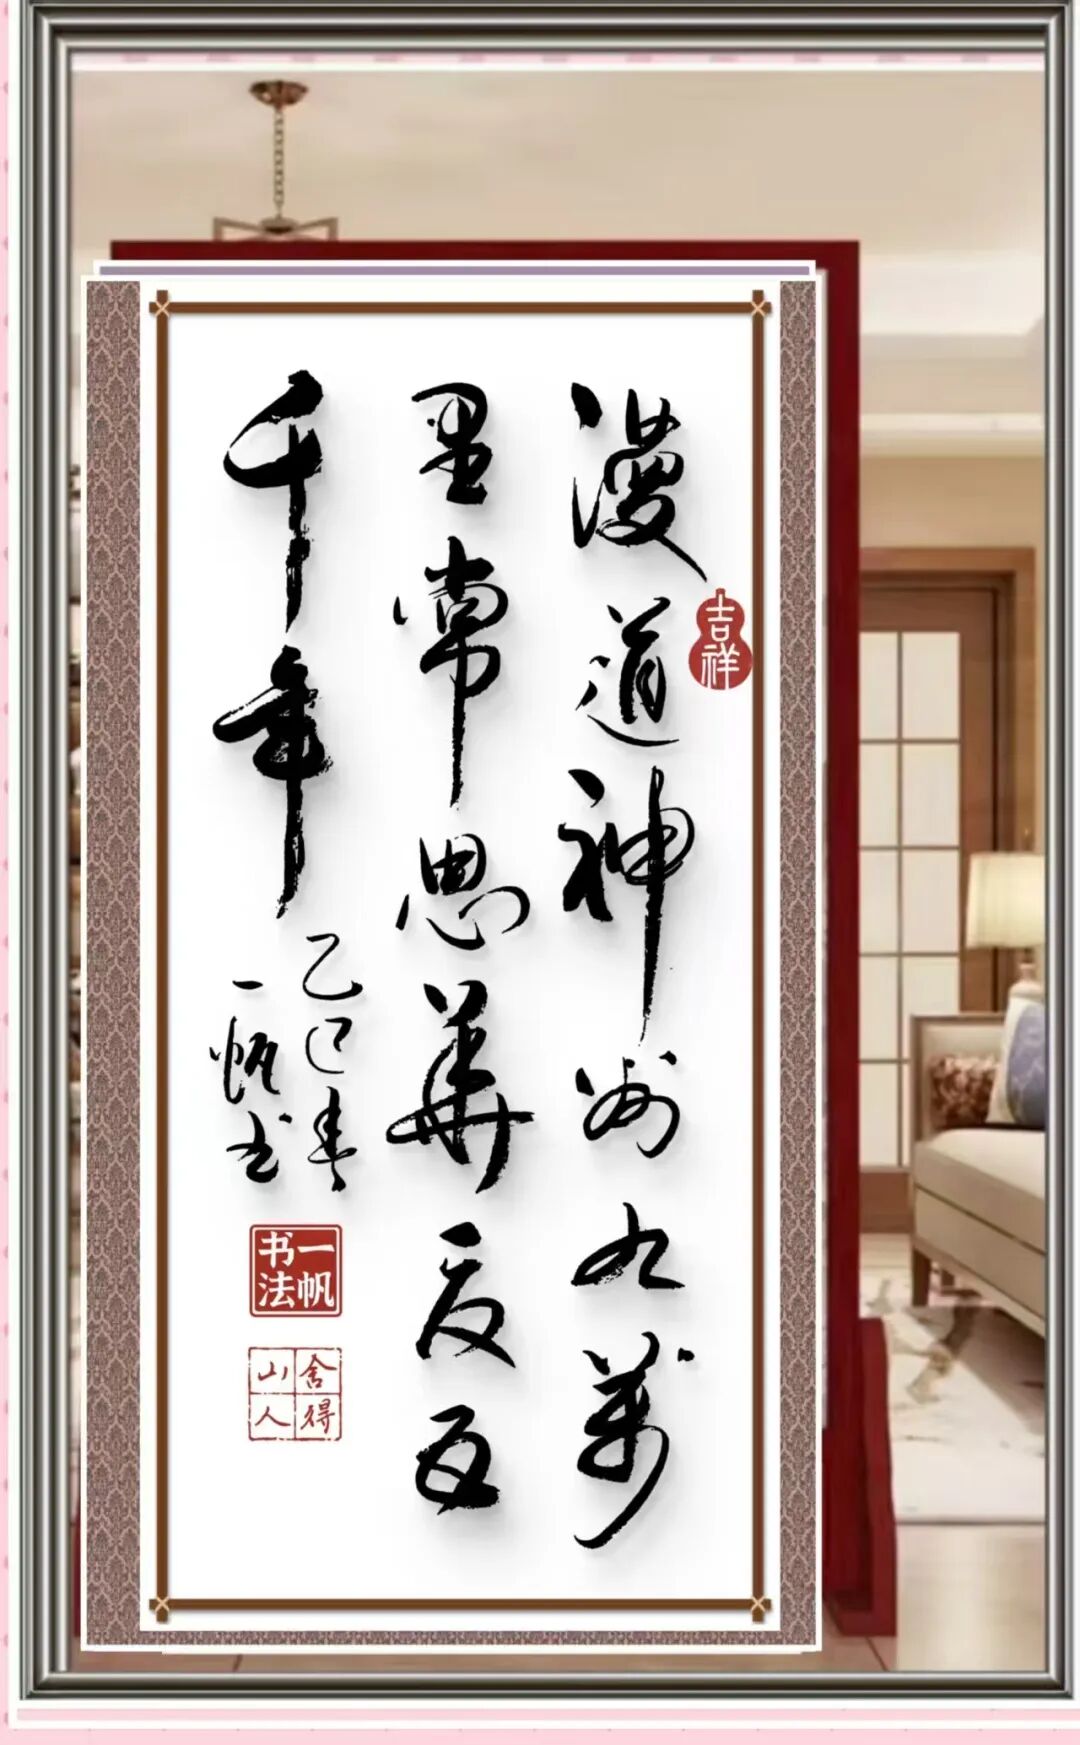 漫道神州九萬
吉祥
里常思華夏五
千年
乙巳春
一帆书
一帆书法
舍得山人